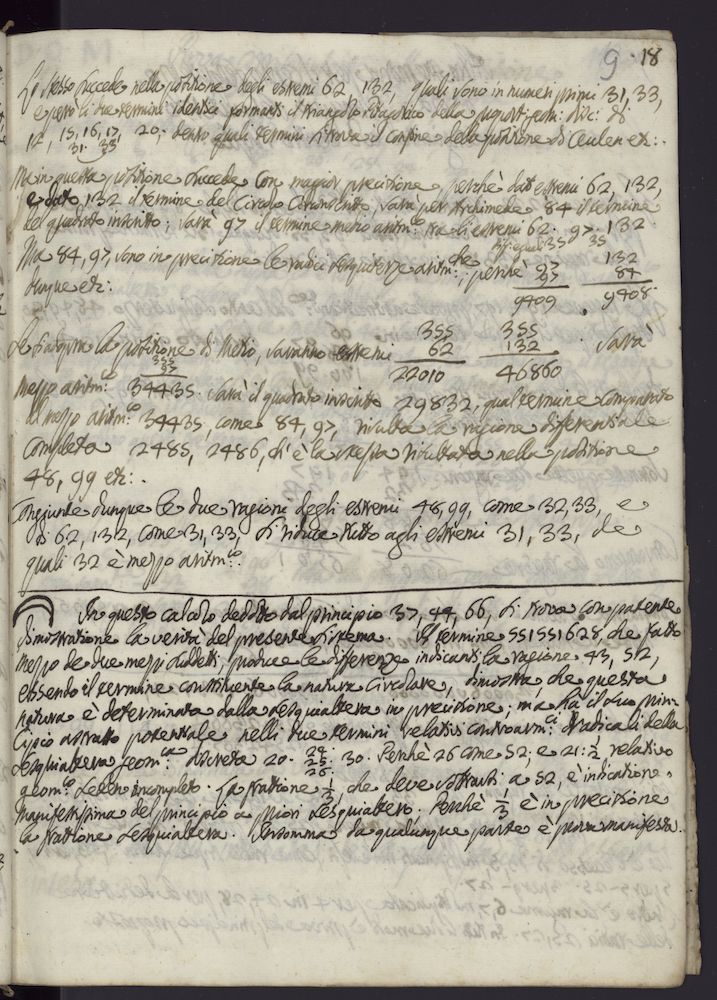 9 · 18
Lo stesso succede nella posizione degli estremi 62, 132, quali sono in numeri primi 31, 33,
e però li due termini identici formanti il triangolo Pitagorico della
15, 16, 17, 20, dentro quali termini si trova il confine della posizione di Ceulen etc:.
31. 33
Ma in questa posizione succede con maggior precisione, perchè dati estremi 62, 132,
e dato 132 il termine del Circolo Circonscritto, sarà per Archimede 84 il termine
del quadrato inscritto; sarà 97 il termine mezzo aritm:co tra li estremi 62. 97. 132
35 35
Ma 84, 97, sono in precisione le radici sesquiterze aritm:che, perchè 97 132
97 84
dunque etc: 9409 9408
Se si adopra la posizione di Mezio, saranno estremi 355 355 Sarà
62 132
22010 46860
355
97
mezzo aritm:co 34435. Sarà il quadrato inscritto 29832, qual termine comparato
al mezzo aritm:co 34435, come 84, 97, risulta la ragione differenziale
completa 2485, 2486, ch'è la stessa risultata nella posizione
48, 99 etc:.
Congiunte dunque le due ragioni degli estremi 48, 99, come 32, 33, e
di 62, 132, come 31, 33, si riduce tutto agli estremi 31, 33, de
quali 32 è mezzo aritm:co.
In questo calcolo dedotto dal principio 37, 44, 66, si trova con patente
dimostrazione la verità del presente sistema. Il termine 551551628, che fatto
mezzo de due mezzi suddetti, produce le differenze indicanti la ragione 43, 512,
essendo il termine constituente la natura Circolare, dimostra, che questa
natura è determinata dalla sesquialtera in precisione; ma ha il suo prin-
cipio astratto potenziale nelli due termini relativi contraarm:ci radicali della
sesquialtera geom:ca discreta 20. 24 30. Perchè 26 come 52; e 21:½ relativo
25
26
geom:co incompleto. La frazione ⅓, che deve sottrarsi a 52, è indicazione
manifestissima del principio a priori sesquialtero. Perchè ⅓ è in precisione
la frazione sesquialtera. Insomma da qualunque parte è manifesta.